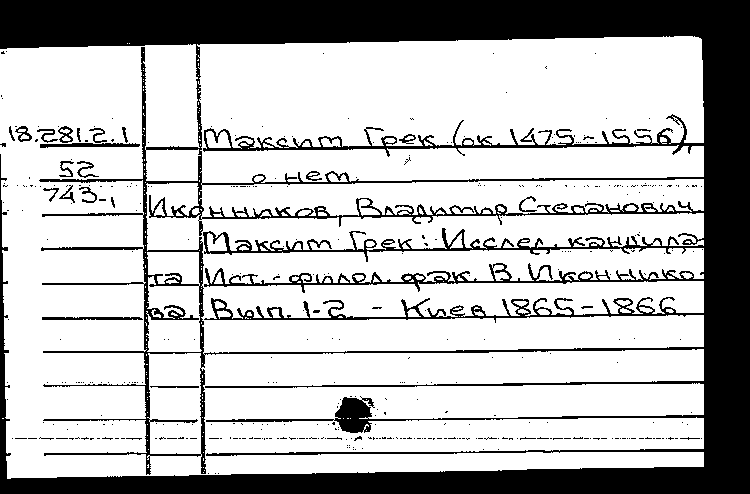 18.281.2.1 Максим Грек (ок. 1475-1556),
52 о нем.
743-1 Иконников, Владимир Степанович.
Максим Грек: Исслед. кандида-
та Ист.-филол. фак. В. Иконнико-
ва. Вып. 1-2. - Киев, 1865-1866.